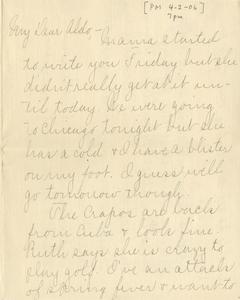 [PM 4-2-06]
7pm
My Dear Aldo -
Mama started
to write you Friday but she
didn't really get at it un-
til today. We were going
to Chicago tonight but she
has a cold & I have a blister
on my foot. I guess we'll
go tomorrow though.
The Crapos are back
from Cuba & look fine.
Ruth says she is crazy to
play golf. I've an attack
of spring fever & want to